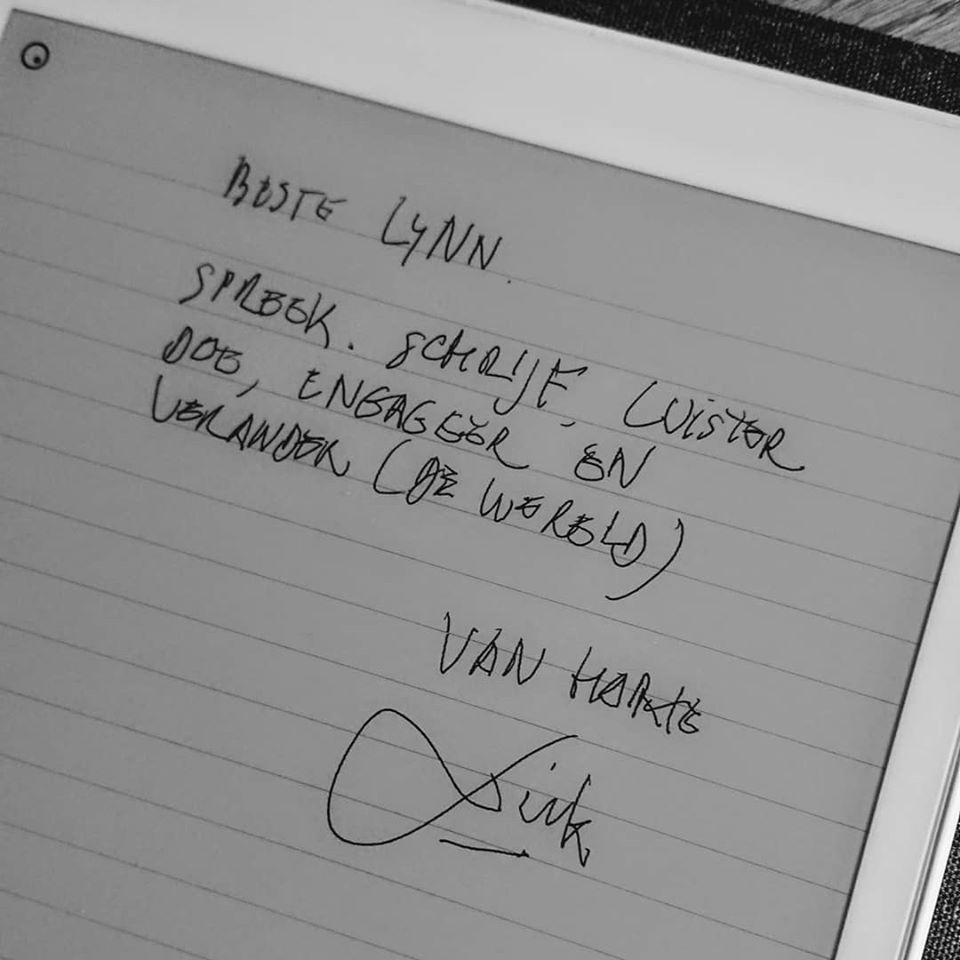 BESTE LYNN.
SPREEK. SCHRIJF, LUISTER
DOE, ENGAGEER EN
VERANDER (DE WERELD)
VAN HARTE
Dirk